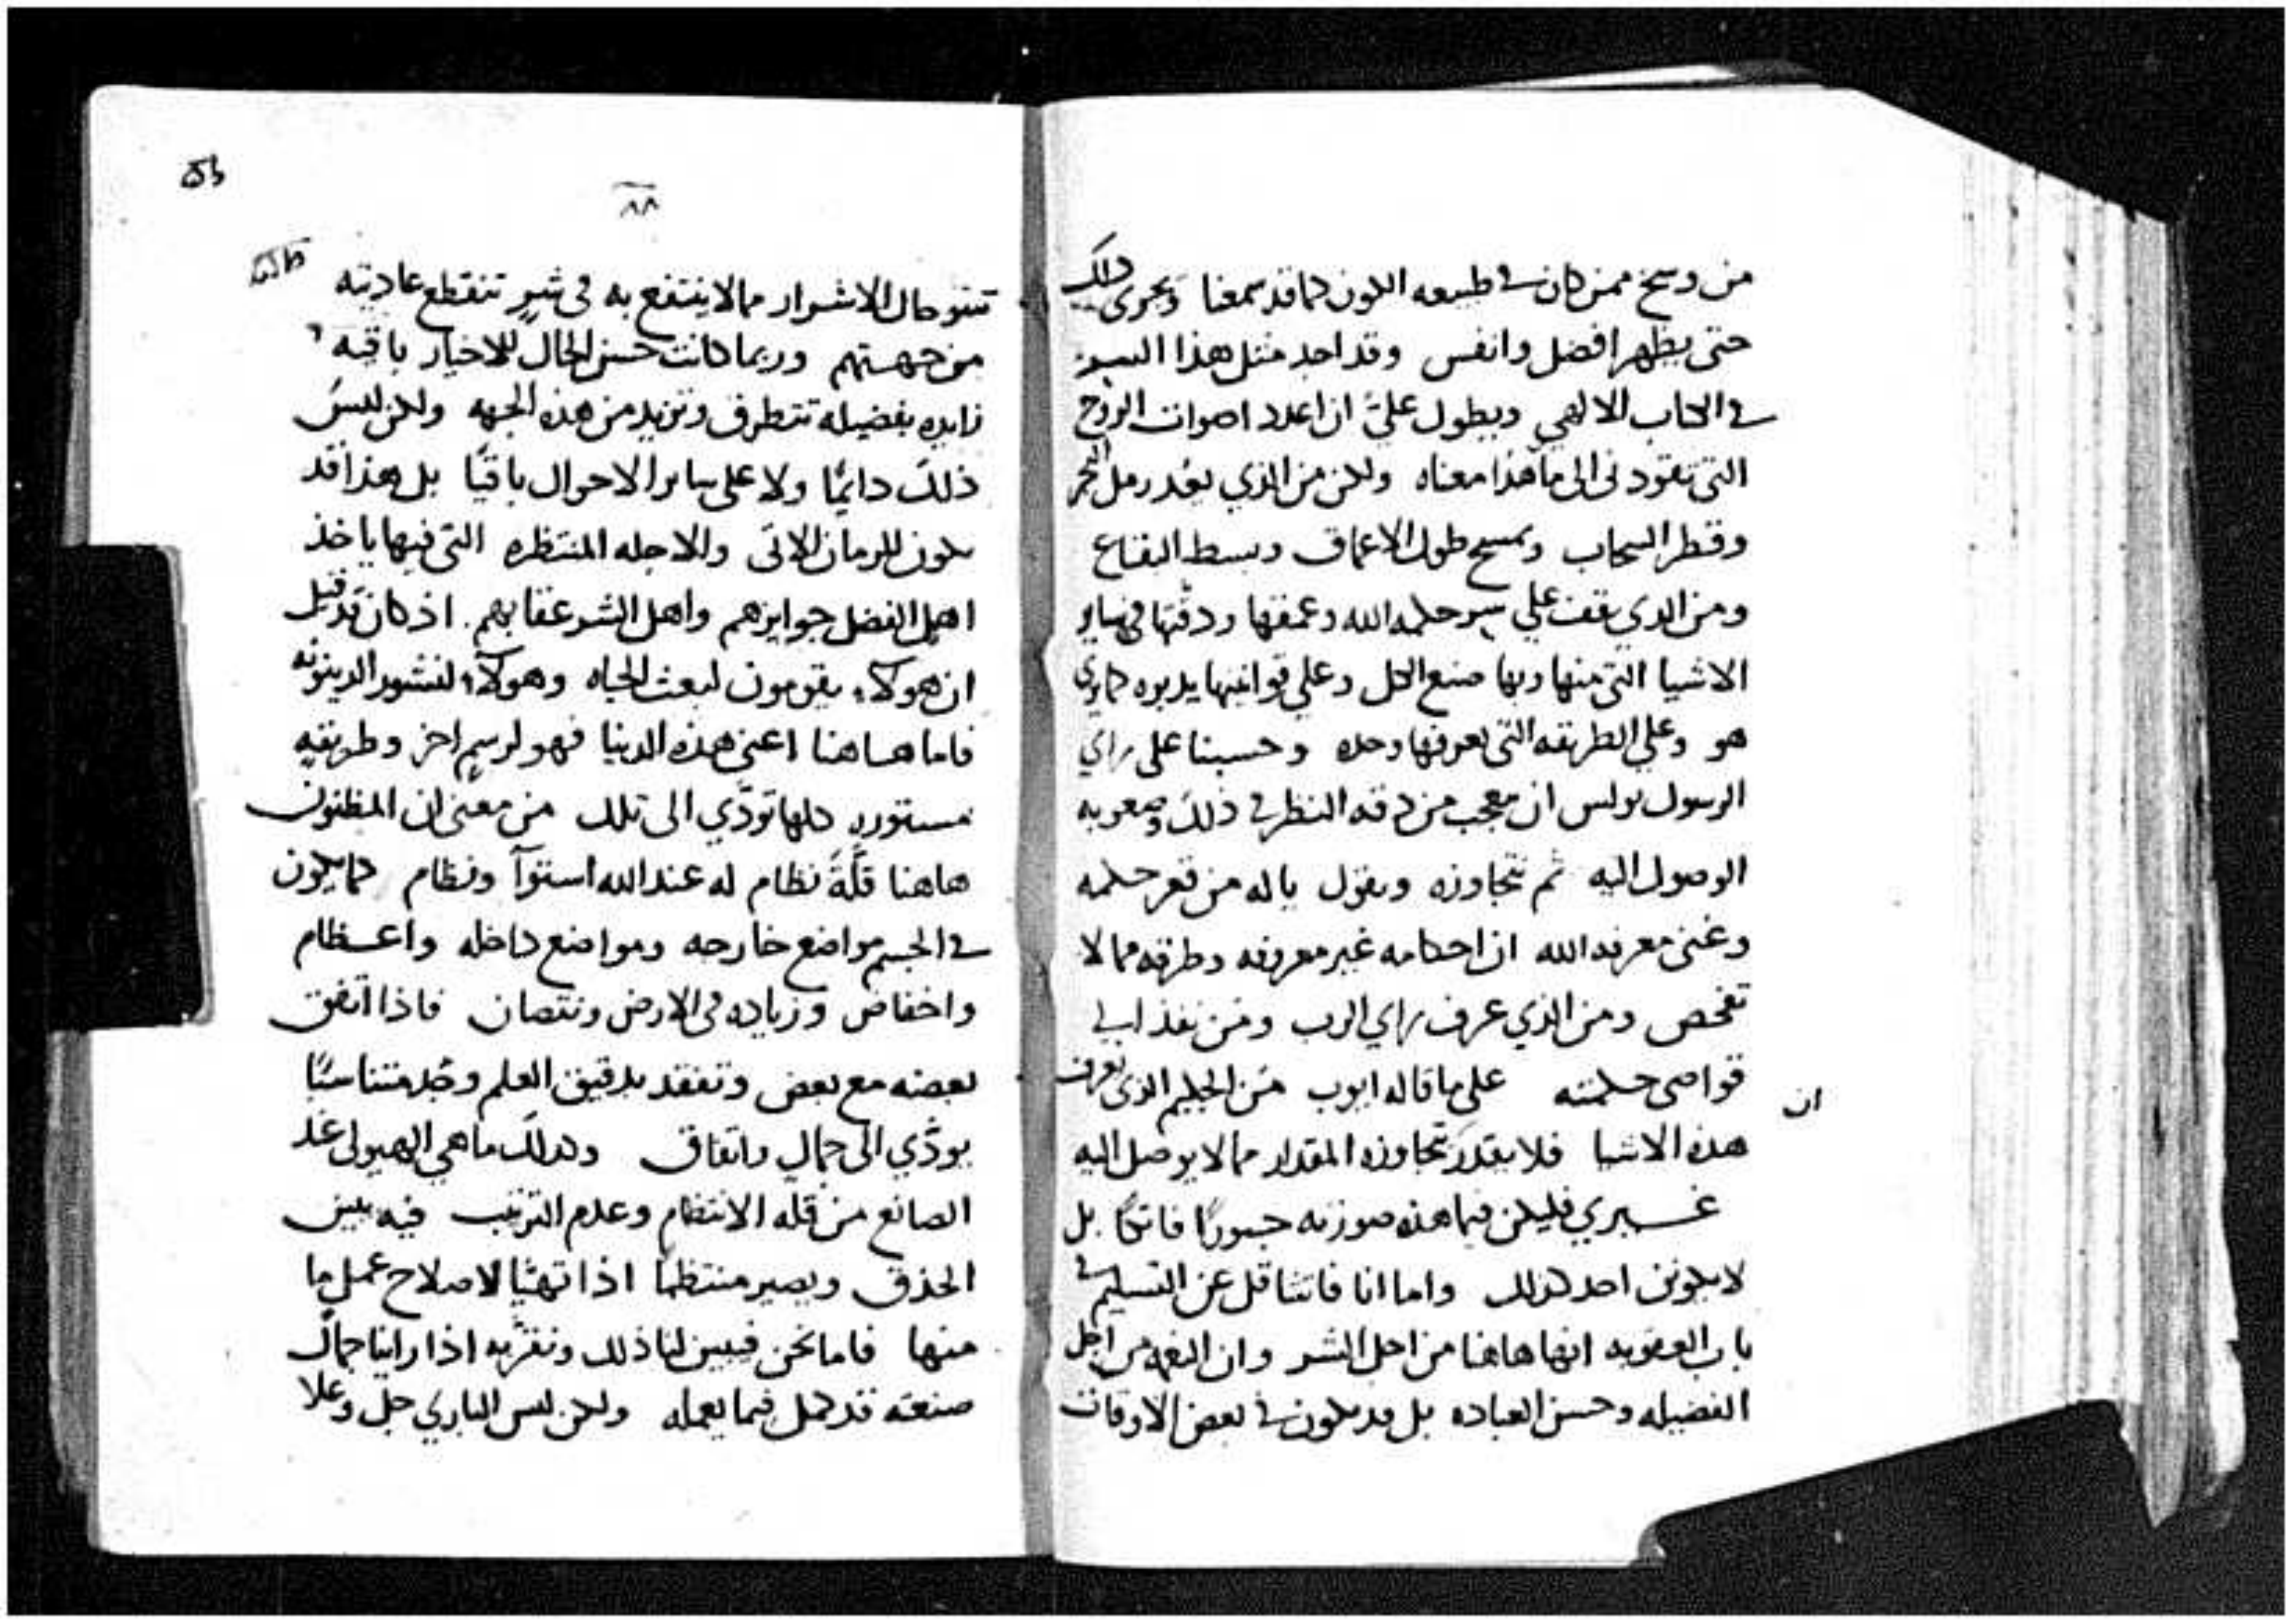 من وسخ ممن كان في طبيعه اللون كما قد سمعنا ويجري ذلك
حتى يظهر افضل وانفس وقد اجد مثل هذا
في الكتاب الالهي ويطول عليَّ ان اعدد اصوات الروح
التي تقودني الى ما هذا معناه ولكن من الذي يعد رمل البحر
وقطر السحاب ويمسح طول الاعماق وبسط البقاع
ومن الذي يقف علي سر حكمه الله وعمقها ودقتها في ساير
الاشيا التي منها وبها صنع الكل وعلي قوانينها يدبره كما يري
هو وعلي الطريقه التي يعرفها وحده وحسبنا على راي
الرسول بولس ان نعجب من دقه النظر في ذلك وصعوبه
الوصول اليه ثم نتجاوزه ونقول ياله من قعر حكمه
وغنى معرفه الله ان احكامه غير معروفه وطرقه مما لا
تفحص ومن الذي عرف راي الرب ومن نفذ الي
قواصي حكمته على ما قاله ايوب من الحكيم الذي يعرف
ان
هذه الاشيا فلا يقدر تجاوزه المقدار مما لا يوصل اليه
غيري فليكن فيما هذه صورته جسورًا فاتكًا بل
لا يكونن احد كذلك واما انا فاتثاقل عن التسليم في
باب العقوبه انها هاهنا من اجل الشر وان النعمه من اجل
الفضيله وحسن العباده بل قد يكون في بعض الاوقات
٨٨
تنتو حال الاشرار مما لا ينتفع به في شرٍ تنقطع عاديته
من جهتهم وربما كانت حسن الحال للاخيار باقيه
زايده بفضيله تتطرف وتزيد من هذه الجهه ولكن ليس
ذلك دايمًا ولا على ساير الاحوال باقيًا بل هذا قد
يكون للزمان الاتي والاجله المنتظره التي فيها ياخذ
اهل الفضل جوايزهم واهل الشر عقابهم اذ كان قد قيل
ان هوكآء يقومون لبعث الحياه وهوكآء لنشور الدينونه
فاما هاهنا اعني هذه الدنيا فهو لرسمٍ اخر وطريقهٍ
مستورهٍ كلها تودّي الى تلك من معنى ان المظنون
هاهنا قلَّة نظام له عند الله استوآ ونظام كما يكون
في الجسم مواضع خارجه ومواضع داخله واعظام
واخفاض وزياده في الارض ونقصان فاذا اتفق
بعضه مع بعض وتفقد بدقيق العلم وجُد متناسبًا
يودّي الى جمالٍ واتفاق وكذلك ما هي الهيولى عند
الصانع من قله الانتظام وعدم الترتيب فيه يبين
الحذق ويصير منتظمًا اذا تهيَّا لاصلاح عمل ما
منها فاما نحن فيبين لنا ذلك ونقرّ به اذا راينا جمال
صنعته قد كمل فيما يعمله ولكن ليس الباري جل وعلا